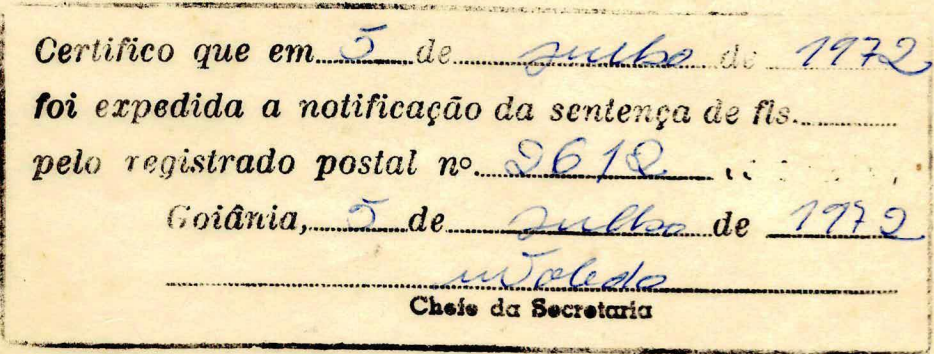 Certifico que em 5 de julho de 1972
foi expedida a notificação da sentença de fls.
pelo registrado postal nº. 2612
Goiânia, 5 de julho de 1972
Chefe da Secretaria